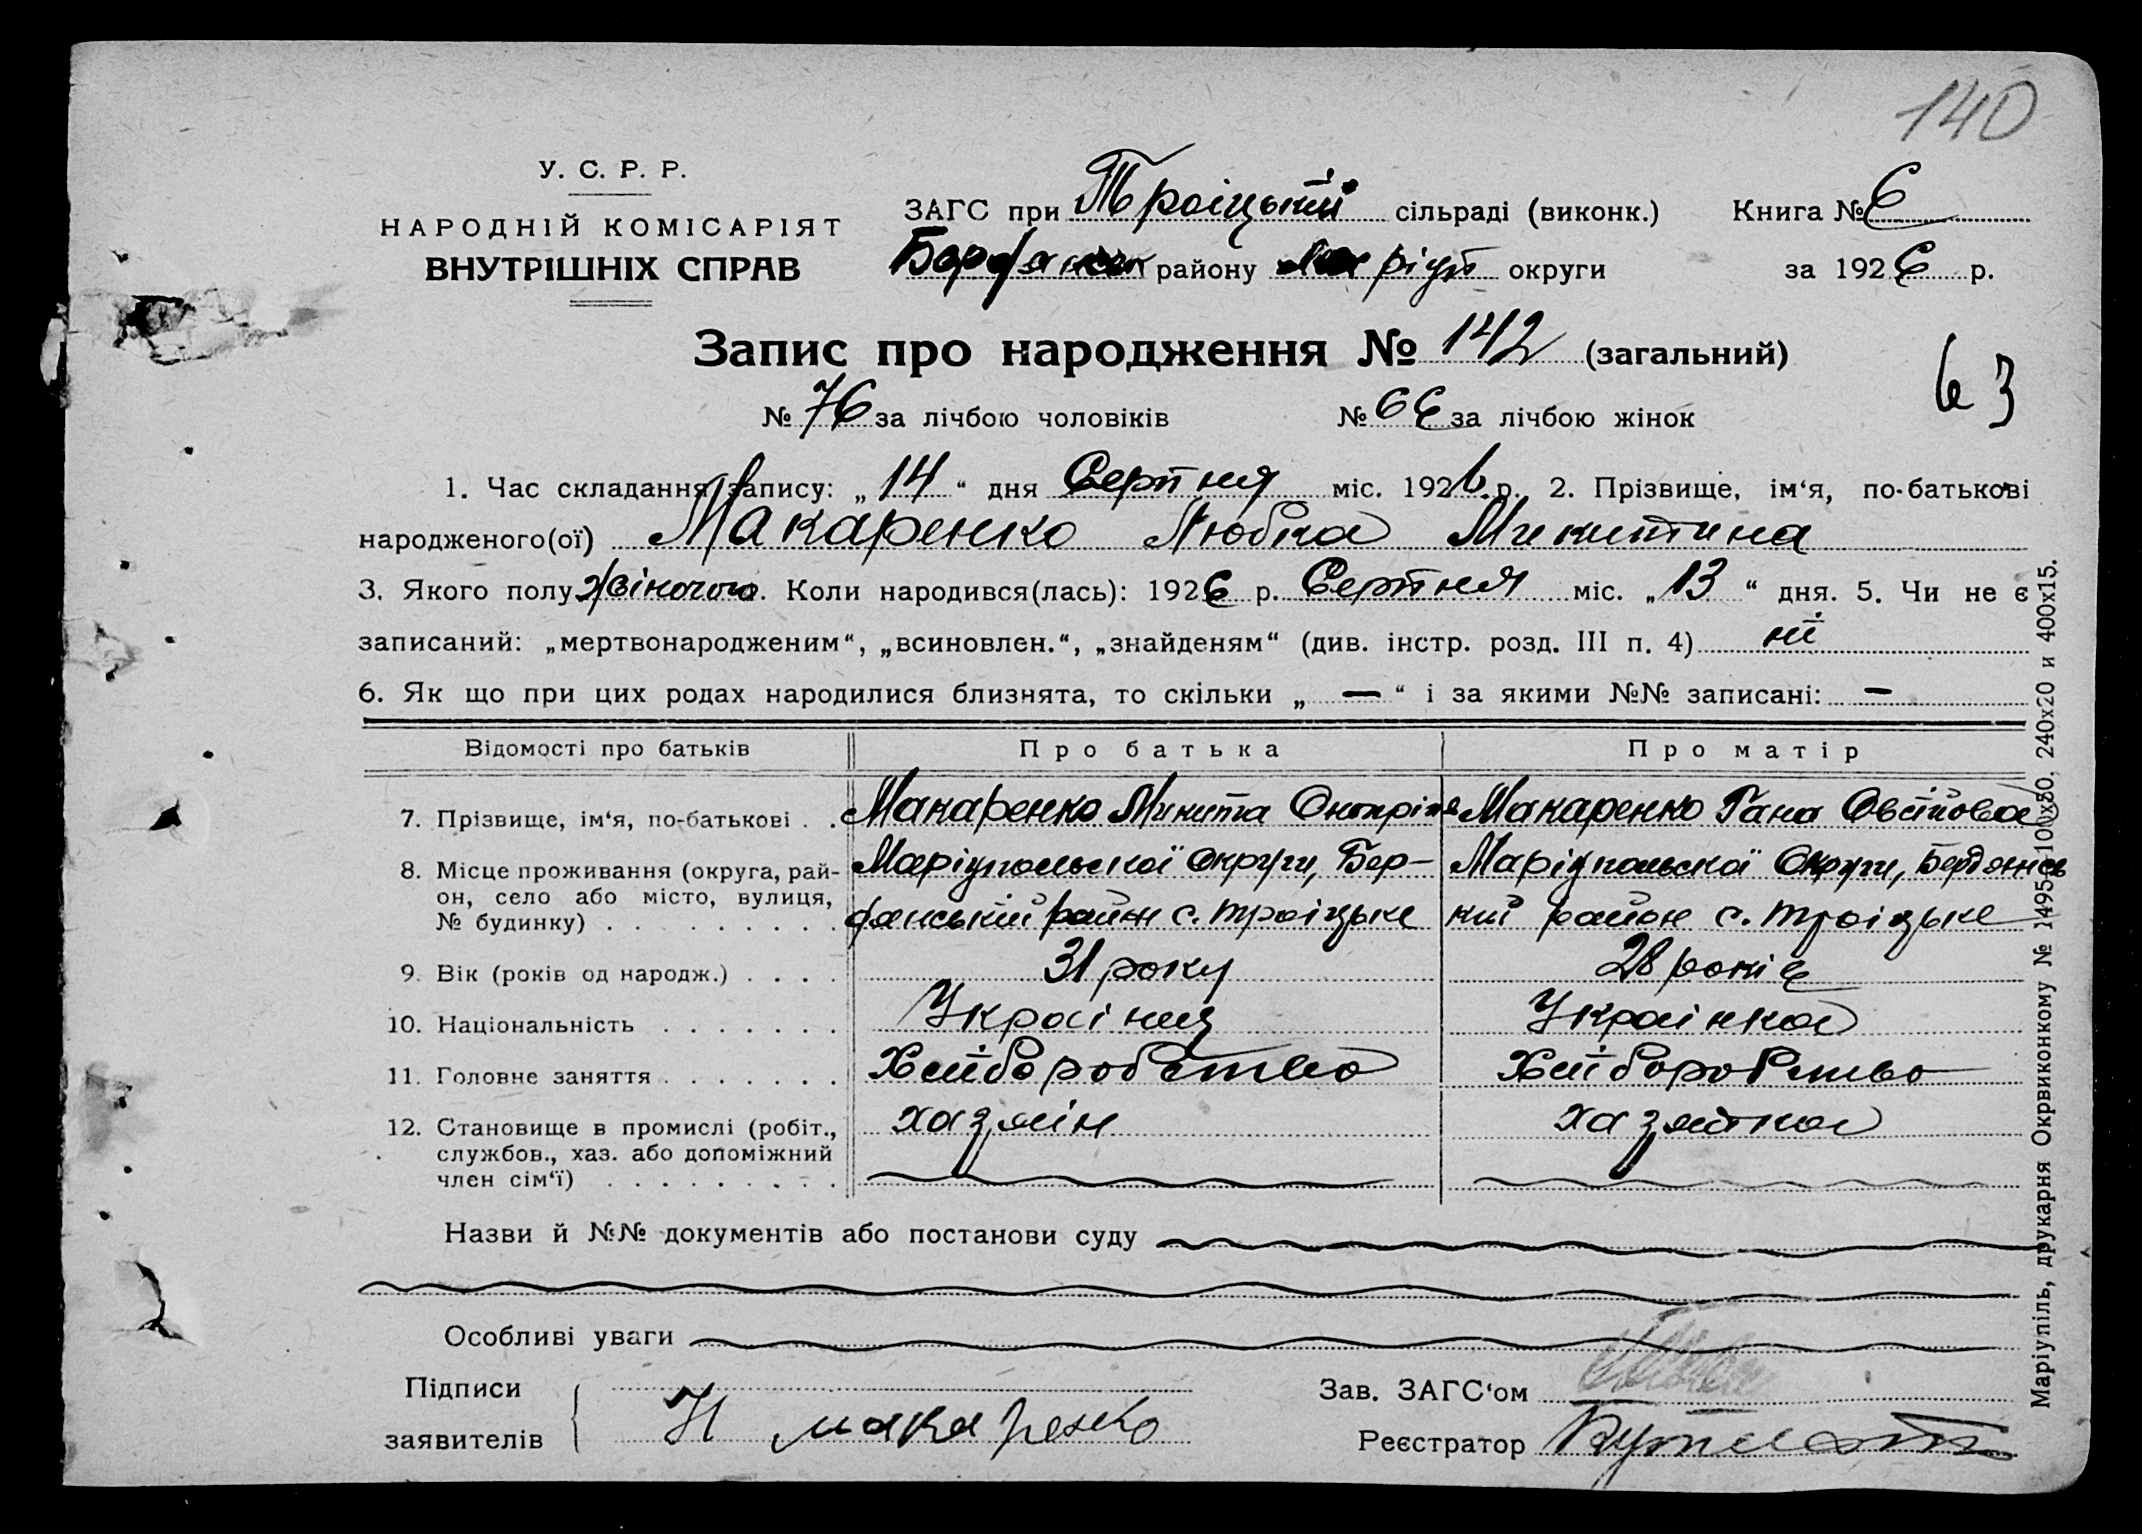 140
У. С. Р. Р.
НАРОДНІЙ КОМІСАРІЯТ
ВНУТРІШНІХ СПРАВ
ЗАГС при Троіцькій сільраді (виконк.) Книга № 6
Бердянськ району Маріуп округи за 1926 р.
Запис про народження № 142 (загальний)
63
№ 76 за лічбою чоловіків № 66 за лічбою жінок
1. Час складання запису: „14“ дня Серпня міс. 1926 р. 2. Прізвище, ім‘я, по-батькові
народженого(ої) Макаренко Любка Микитина
3. Якого полу жіночого. Коли народився(лась): 1926 р. Серпня міс. „13“ дня. 5. Чи не є
записаний: „мертвонародженим“, „всиновлен.“, „знайденям“ (див. інстр. розд. III п. 4) ні
6. Як що при цих родах народилися близнята, то скільки „ — “ і за якими №№ записані: —
Відомості про батьків Про батька Про матір
7. Прізвище, ім‘я, по-батькові . . Макаренко Микита Макаренко Гана
8. Місце проживання (округа, рай- Маріупольскої Округи, Бер- Маріупольскої Округи, Бердянсь
он, село або місто, вулиця, дянський район с. Троіцьке кий район с. Троіцьке
№ будинку) . . . . . . . . .
9. Вік (років од народж.) . . . . 31 року 28 років
10. Національність . . . . . . . Украінец Украінка
11. Головне заняття . . . . . . . Хлібборобство Хлібборобство
12. Становище в промислі (робіт., хазяін хазяйка
службов., хаз. або допоміжний
член сім‘ї) . . . . . . . . .
Назви й №№ документів або постанови суду
Особливі уваги
Підписи Зав. ЗАГС‘ом
заявителів Н макаренко Реєстратор
Маріупіль, друкарня Окрвиконкому № 1495—100х50. 240х20 и 400х15.